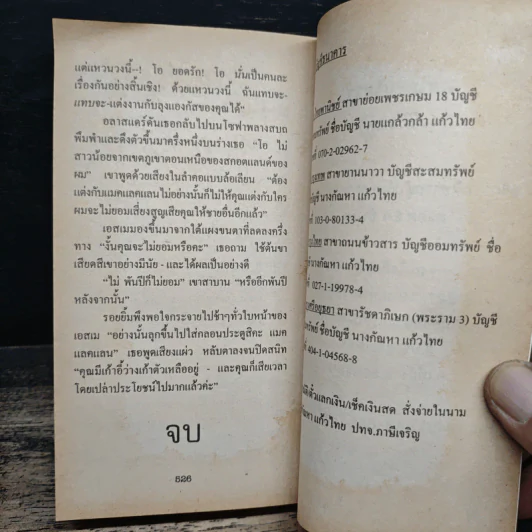 แต่แหวนวงนี้--! โอ ยอดรัก! โอ นั่นเป็นคนละ
เรื่องกันอย่างสิ้นเชิง! ด้วยแหวนวงนี้ ฉันแทบจะ-
แทบจะ-แต่งงานกับลุงแองกัสของคุณได้"
อลาสแตร์ดันเธอกลับไปบนโซฟาพลางสบถ
พึมพำและดึงตัวขึ้นมาครึ่งหนึ่งบนร่างเธอ "โอ ไม่
สาวน้อยจากเขตภูเขาตอนเหนือของสกอตแลนด์ของ
ผม" เขาพูดด้วยเสียงในลำคอแบบล้อเลียน "ต้อง
แต่งกับแมคแลคแลนไม่อย่างนั้นก็ไม่ให้คุณแต่งกับใคร
ผมจะไม่ยอมเสี่ยงสูญเสียคุณให้ชายอื่นอีกแล้ว"
เอสเมมองขึ้นมาจากใต้แผงขนตาที่ลดลงครึ่ง
ทาง "งั้นคุณจะไม่ยอมหรือคะ" เธอถาม ใช้ต้นขา
เสียดสีเขาอย่างมีนัย - และได้ผลเป็นอย่างดี
"ไม่ พันปีก็ไม่ยอม" เขาสาบาน "หรืออีกพันปี
หลังจากนั้น"
รอยยิ้มพึงพอใจกระจายไปช้าๆทั่วใบหน้าของ
เอสเม "อย่างนั้นลุกขึ้นไปใส่กลอนประตูสิคะ แมค
แลคแลน" เธอพูดเสียงแผ่ว หลับตาลงจนปิดสนิท
"คุณมีเก้าอี้ว่างเก้าตัวเหลืออยู่ - และคุณก็เสียเวลา
โดยเปล่าประโยชน์ไปมากแล้วค่ะ"
จบ
526
ธนาคาร
สาขาย่อยเพชรเกษม 18 บัญชี
ทรัพย์ ชื่อบัญชี นายแกล้วกล้า แก้วไทย
070-2-02962-7
สาขายานนาวา บัญชีสะสมทรัพย์
บัญชี นางกัณหา แก้วไทย
103-0-80133-4
ไทย สาขาถนนข้าวสาร บัญชีออมทรัพย์ ชื่อ
นางกัณหา แก้วไทย
027-1-19978-4
สาขารัชดาภิเษก (พระราม 3) บัญชี
ทรัพย์ ชื่อบัญชี นางกัณหา แก้วไทย
404-1-04568-8
ตั๋วแลกเงิน/เช็คเงินสด สั่งจ่ายในนาม
แก้วไทย ปทจ.ภาษีเจริญ